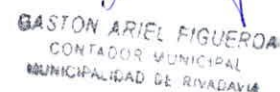 GASTON ARIEL FIGUEROA
CONTADOR MUNICIPAL
MUNICIPALIDAD DE RIVADAVIA